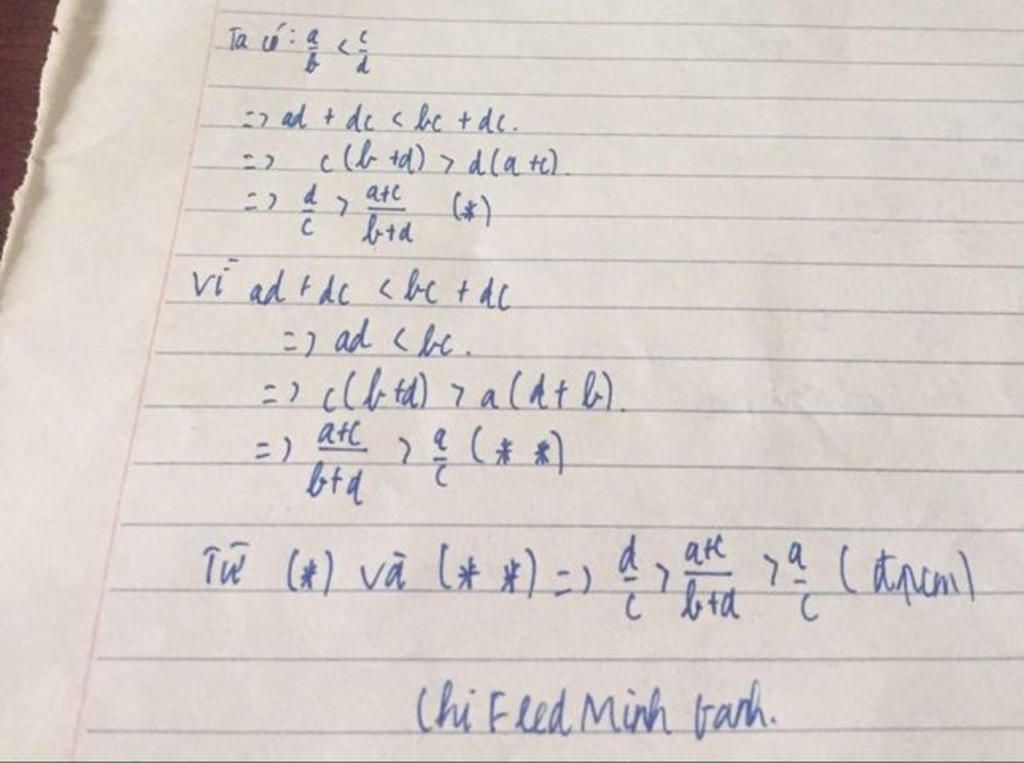 Ta có: a/b < c/d
=> ad + dc < bc + dc.
=> c(b+d) > d(a+c).
=> d/c > a+c/b+d (*)
Vì ad + dc < bc + dc
=> ad < bc.
=> c(b+d) > a(d+b).
=> a+c/b+d > a/c (* *)
Từ (*) và (* *) => d/c > a+c/b+d > a/c (đpcm)
Chi Feed Minh